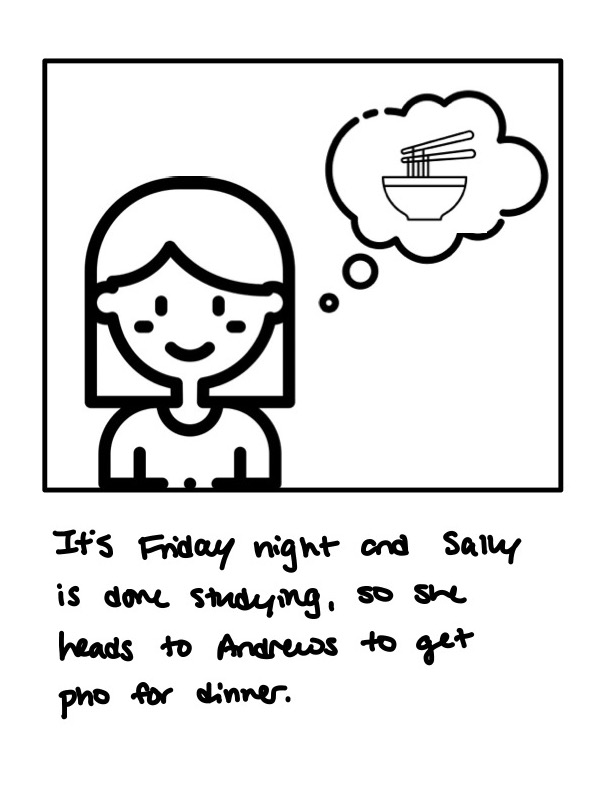 It's Friday night and Sally
is done studying, so she
heads to Andrews to get
pho for dinner.